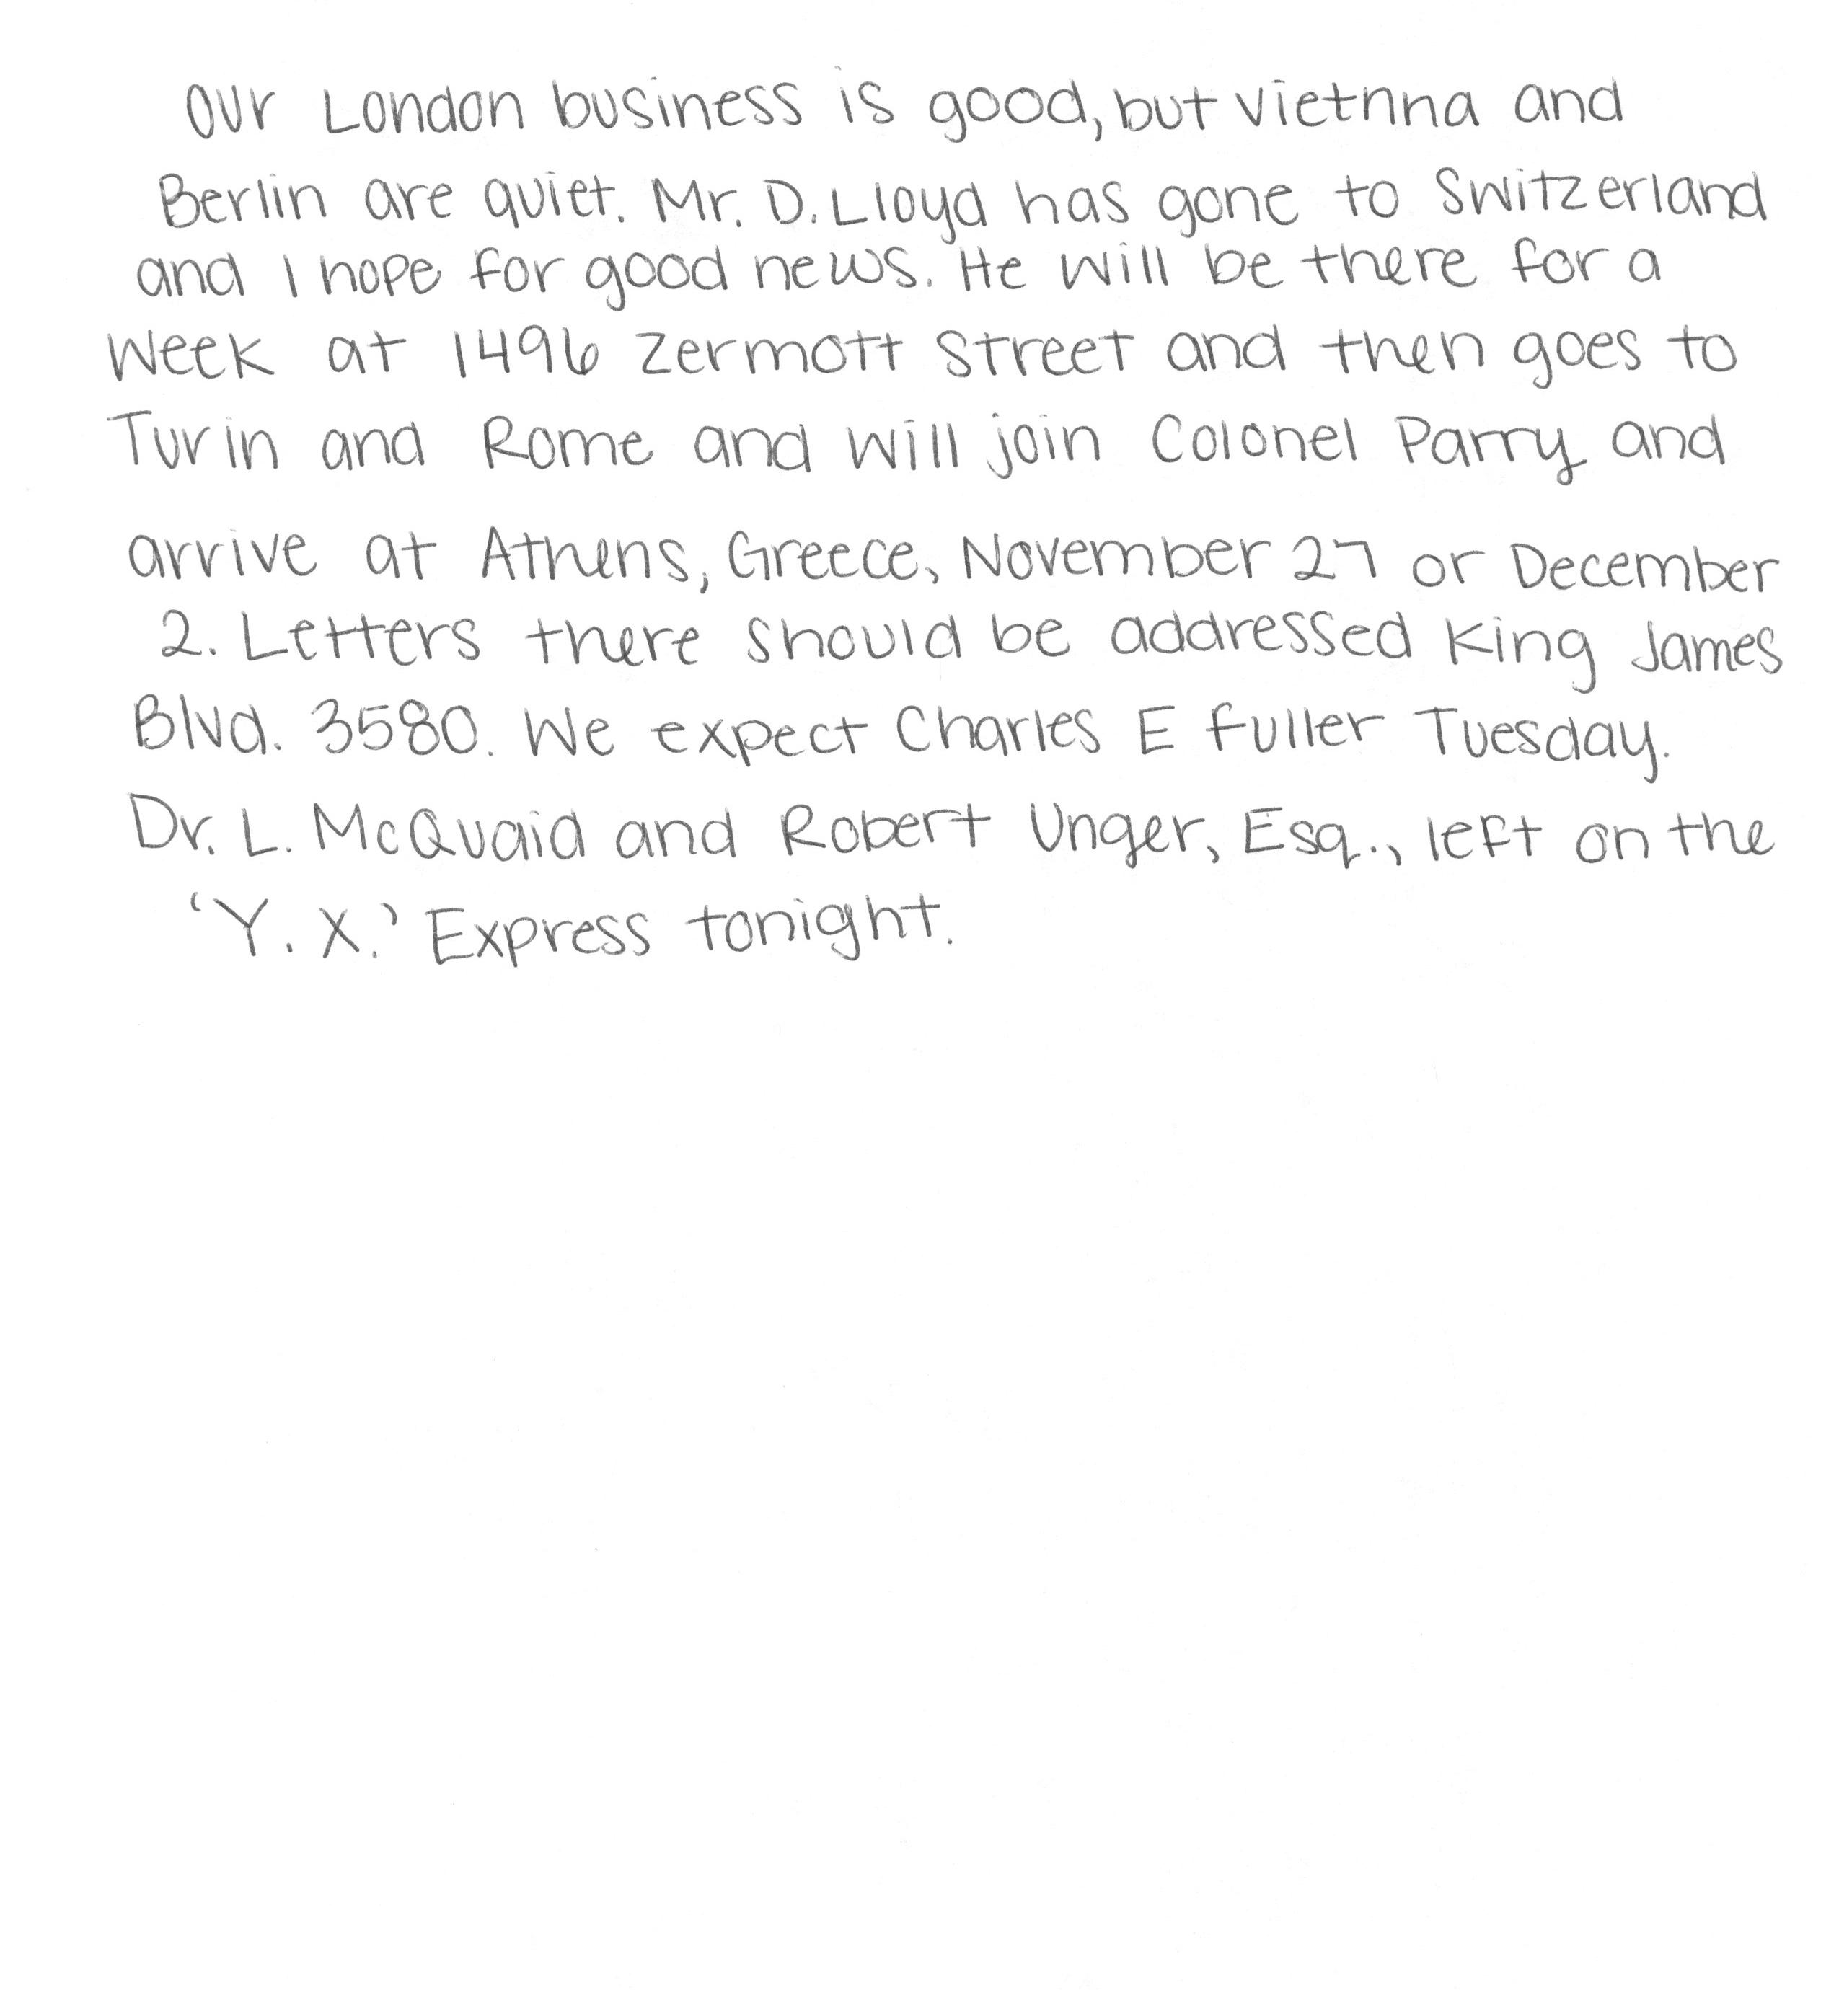 Our London business is good, but Vietnna and
Berlin are quiet. Mr. D. Lloyd has gone to Switzerland
and I hope for good news. He will be there for a
week at 1496 Zermott Street and then goes to
Turin and Rome and will join Colonel Parry and
arrive at Athens, Greece, November 27 or December
2. Letters there should be addressed King James
Blvd. 3580. We expect Charles E Fuller Tuesday.
Dr. L. McQuaid and Robert Unger, Esq., left on the
'Y. X.' Express tonight.